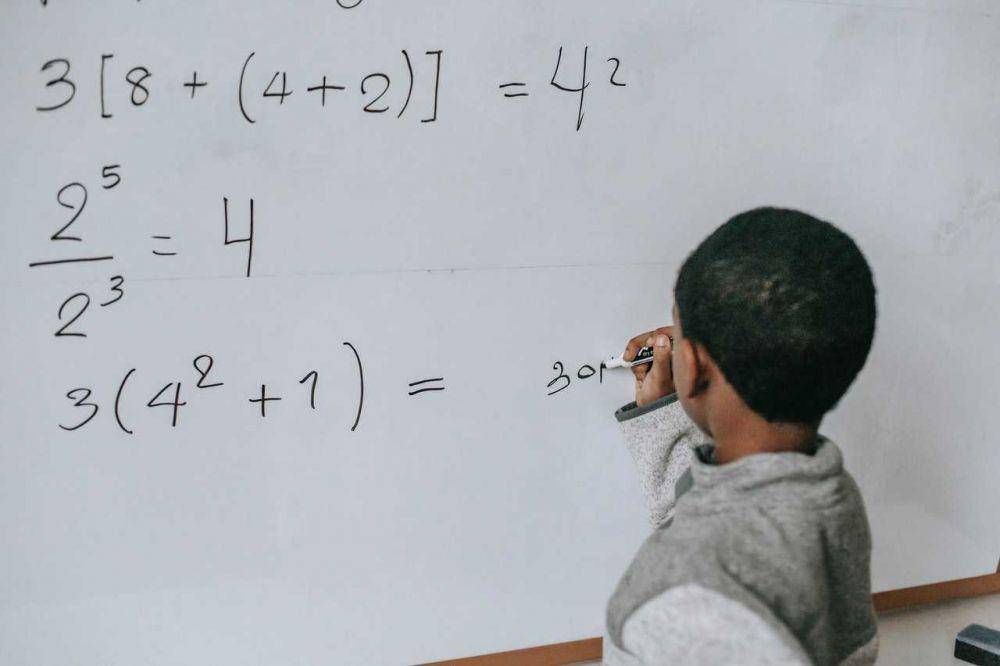 3[8+(4+2)] = 42
2⁵/2³ = 4
3(4²+1) =